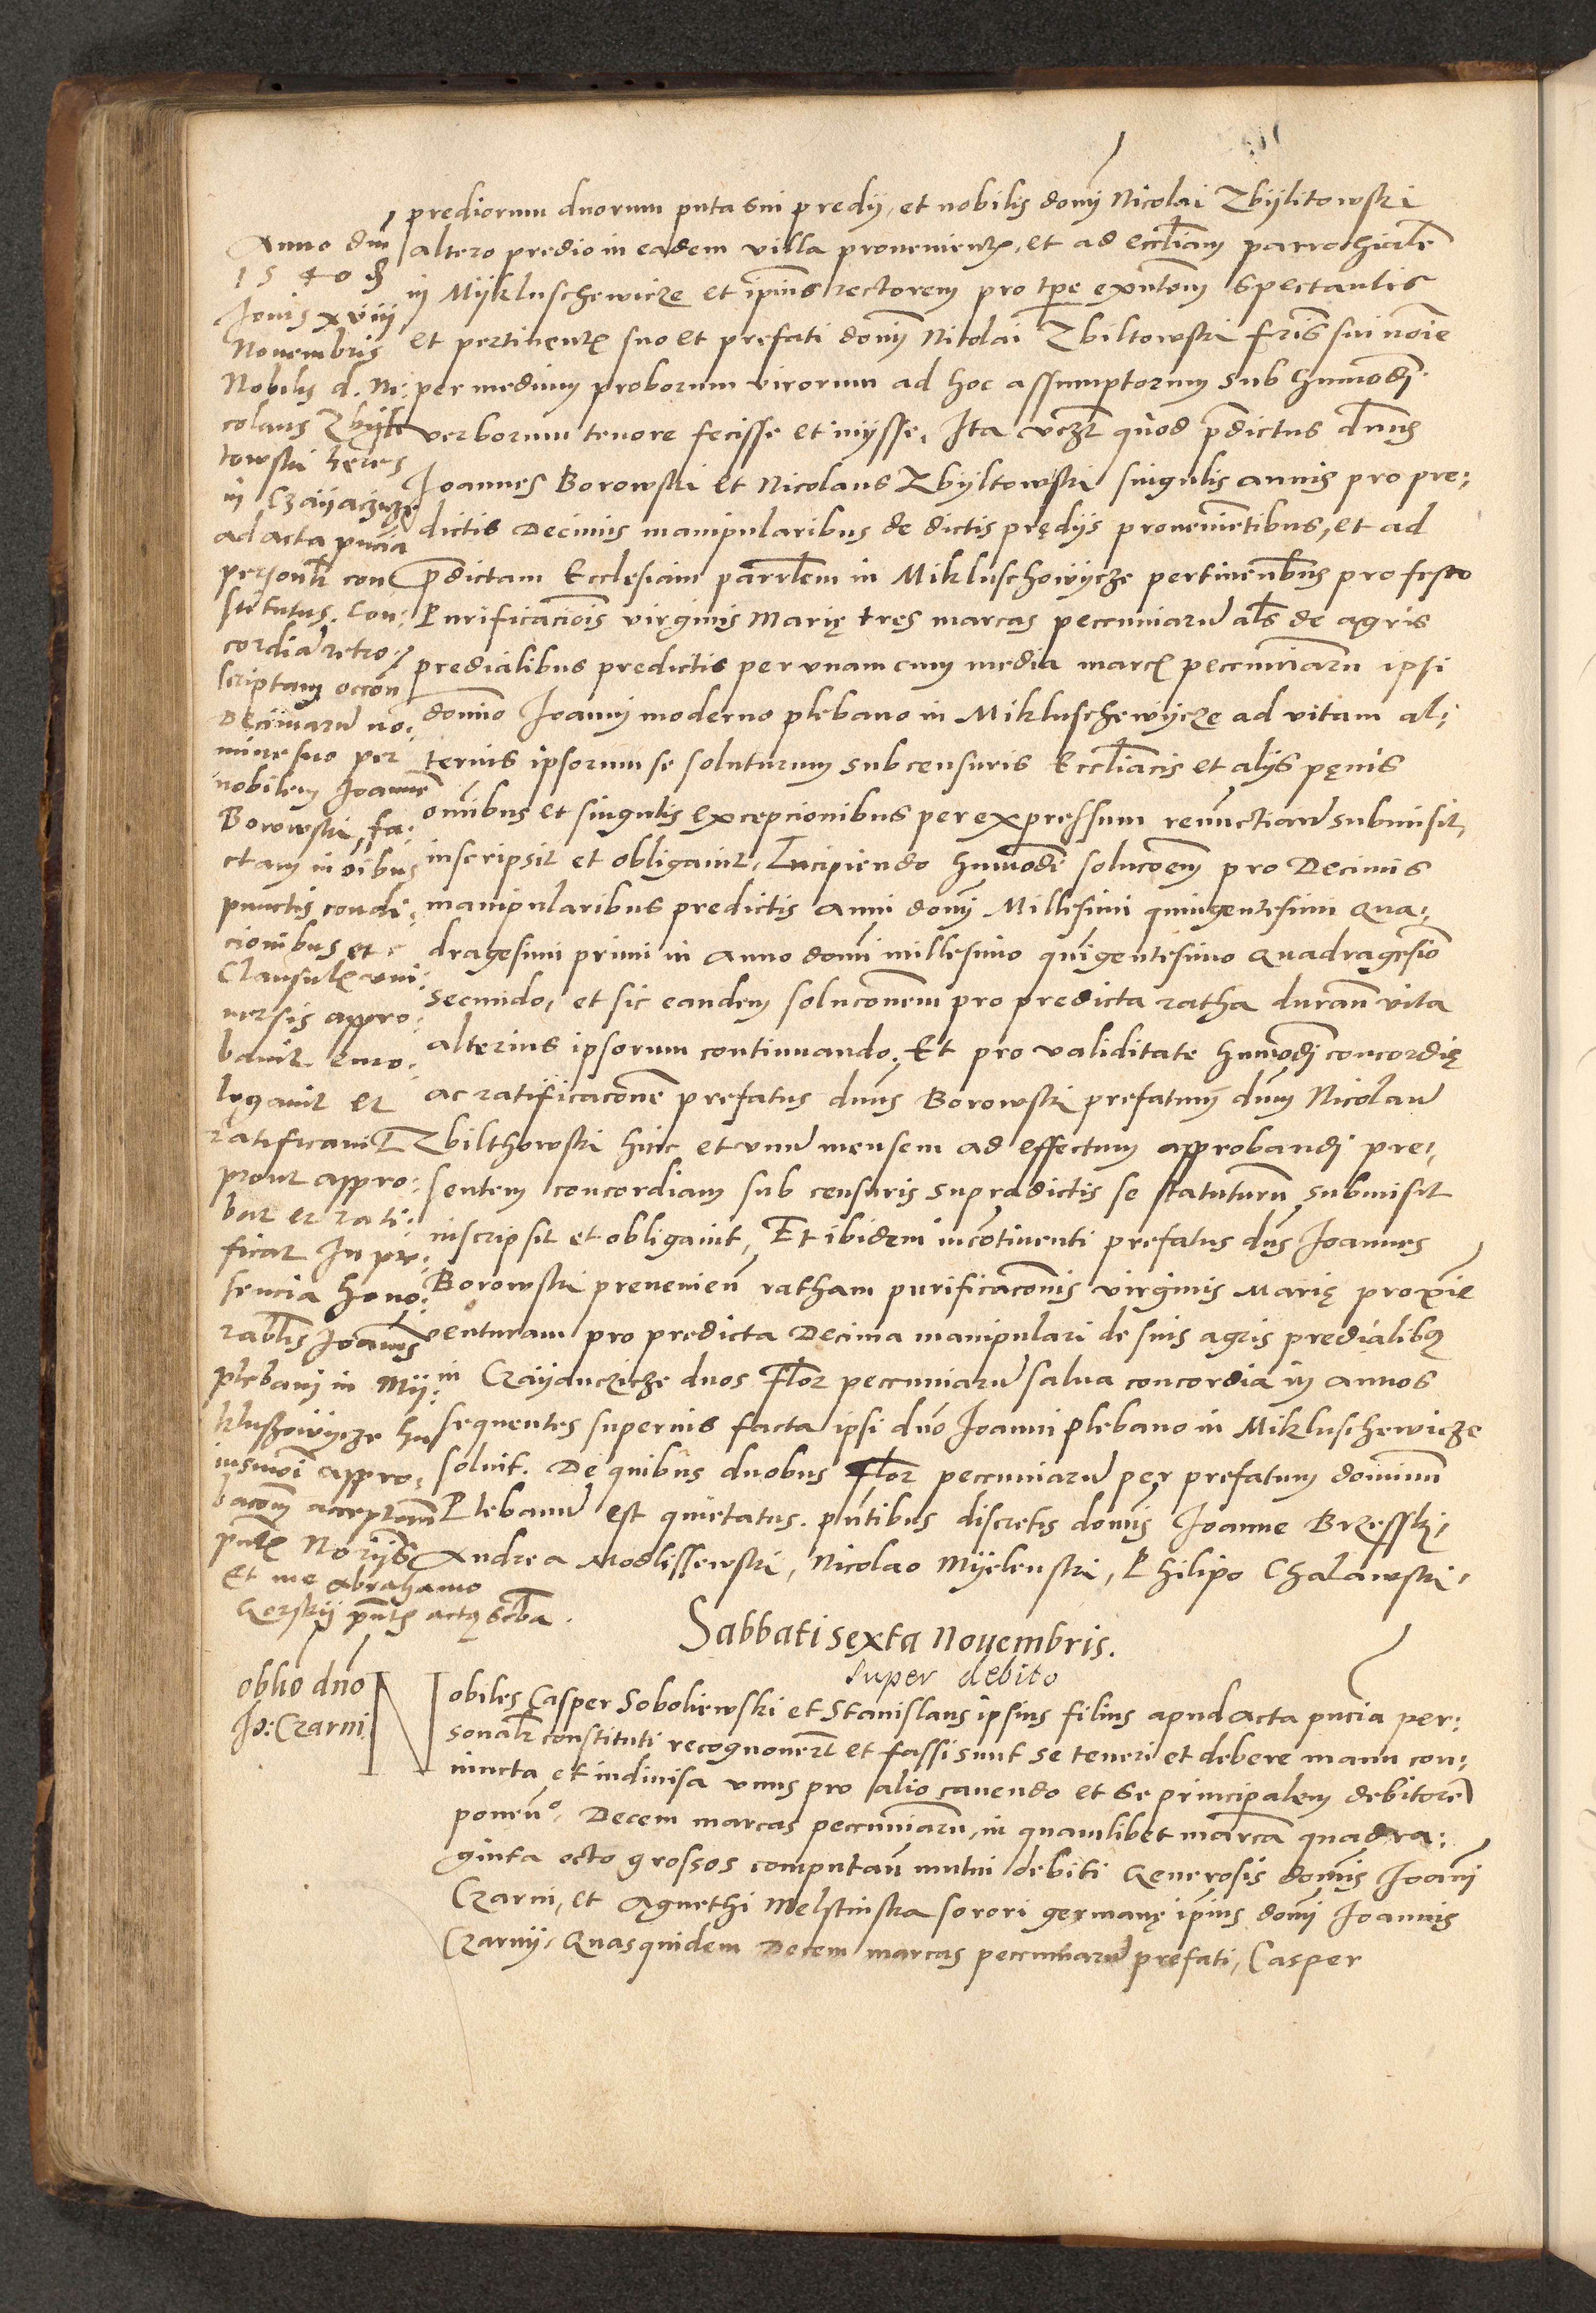 prediorum duorum puta sui predij, et nobilis domi Nicolai Zbijlitowski
altero predio in eadem villa provenientz, et ad eccliam parrochialẽ
in Mijkluschewicze et ipius rectorem pro tpe exnten spectantis
et pertinentz suo et prefati domi Nicolai Zbiltowski fris sui noie
per medium proborum virorum ad hoc assumptorum sub huiusmodi
verborum tenore fecisse et inijsse. Ita vczt quod pdictus dnus
Joannes Borowski et Nicolaus Zbijltowski singulis annis pro pre:
dictis Decimis manipularibus de dictis prędijs provenientibus, et ad
pdictam Ecclesiam parrlem in Mikluschowijcze pertinentibus pro festo
Purificaciois virginis Marię tres marcas pecuniarũ als de agris
predialibus predictis per vnam cum media marcz pecuniarũ ipsi
domino Joanni moderno plebano in Mikluschewijcze ad vitam al:
terius ipsorum se soluturum sub censuris Eccliacis et alijs pęnis
omibus et singulis excepcionibus per expressum renunctian submisit,
inscripsit et obligauit, Incipiendo huiusmodi solucoem pro Decimis
manipularibus predictis anni domi Millesimi quingentesimi qua:
dragesimi primi in anno domi millesimo quigentesimo quadragesio
secundo, et sic eandem soluconem pro predicta ratha duran vita
alterius ipsorum continuando. Et pro validitate huiusmodi concordię
ac ratificaconẽ prefatus dnus Borowski prefatum dnum Nicolaũ
Zbilthowski hinc et vnũ mensem ad effectum approbandi pre:
sentem concordiam sub censuris supradictis se statuturũ submisit
inscripsit et obligauit, Et ibidem incontinenti prefatus dns Joannes
Borowski prevenien ratham purificaconis virginis Marię proxie
venturam pro predicta Decima manipulari de suis agris predialibz
in Czayanczicze duos Flor pecuniarũ salua concordia in annos
sequentes superius facta ipsi dno Joanni plebano in Mikluschewicze
soluit. De quibus duobus Flor pecuniarũ per prefatum dominum
Plebanũ est quietatus. pntibus discretis domis Joanne Brzesski,
Andrea Modlissewski, Nicolao Mijelenski, Philipo Chalawski,
Anno dni
1540 d
Jovis xviij
Novembris
Nobilis d. Ni:
colaus Zbijl
towski heres
in Czayaczicze
ad acta pncia
personlr con
stitutus. Con:
cordiã retro:
scriptam occon
Decimarũ no:
mine suo per
nobilem Joannẽ
Borowski fa:
ctam in oibus
punctis condi:
cionibus et
Clausulz vni:
uersis appro:
bauit emo:
logauit et
ratificauit
prout appro:
bat et rati:
ficat In pre:
sencia hono:
rablis Joanis
plebani in Mij:
klussowijcze hu
iusmoi appro:
bacom acceptan
pntz Norijs
Et me Abrahamo
Gorskij pntz actz scba.
Sabbati sexta Nouembris.
super debito
oblio dno
Jo: Czarni
Nobiles Casper Soboliewski et Stanislaus ipsius filius apud acta pncia per:
sonalr constituti recognouert et fassi sunt se teneri et debere manu con:
iuncta et indiuisa vnus pro alio cauendo et se principalem debitorẽ
ponen°. Decem marcas pecuniarũ, in quamlibet marcã quadra:
ginta octo grossos computan mutui debiti Generosis domis Joani
Czarni, et Agnethi Melstinska sorori germanę ipius domi Joannis
Czarnij. Quasquidem Decem marcas pecuniarũ prefati, Casper